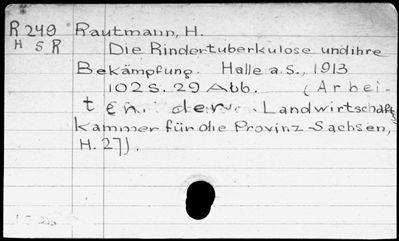 R 240 Rautmann, H.
H 5 R Die Rindertuberkulose und ihre
Bekämpfung. Halle a.S., 1913
102 S. 29 Abb. (Arbei-
ten der Landwirtschafts
Kammer für die Provinz Sachsen,
H. 27).